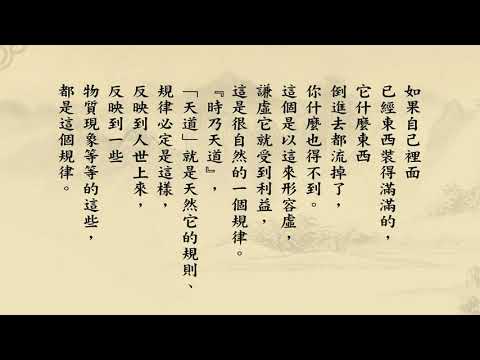 如果自己裡面
已經東西裝得滿滿的，
它什麼東西
倒進去都流掉了，
你什麼也得不到。
這個是以這來形容虛，
謙虛它就受到利益，
這是很自然的一個規律。
『時乃天道』，
「天道」就是天然它的規則、
規律必定是這樣，
反映到人世上來，
反映到一些
物質現象等等的這些，
都是這個規律。